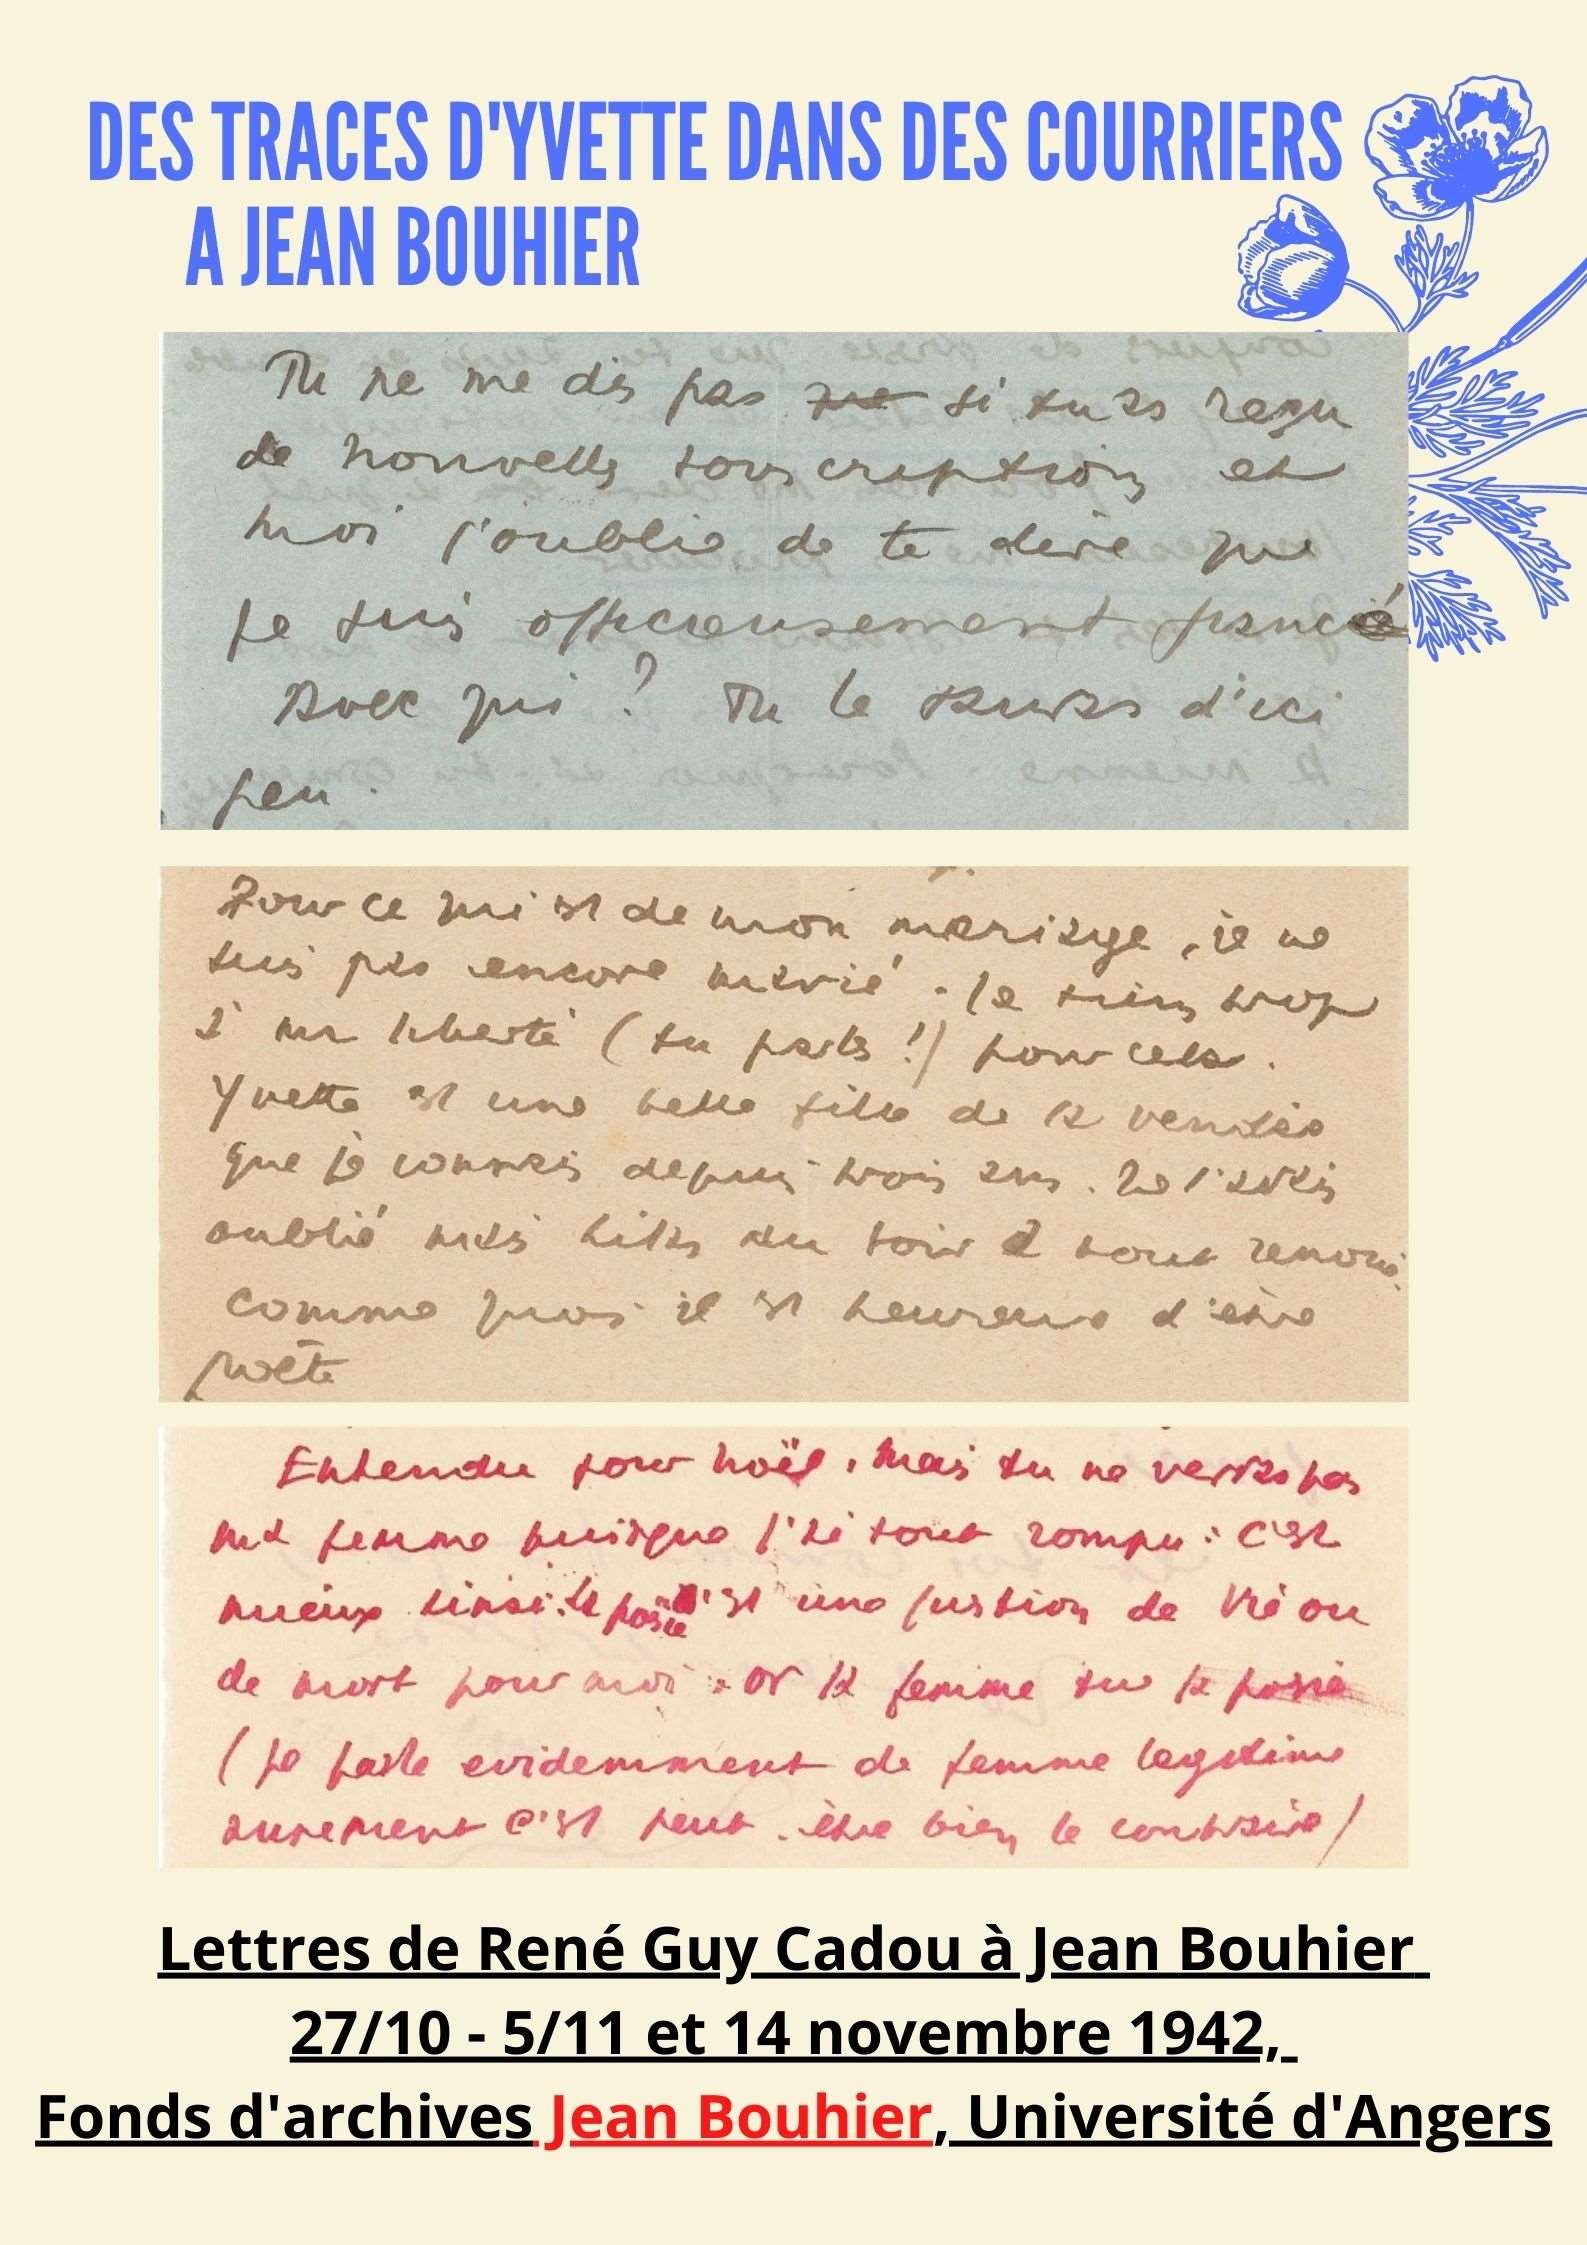 DES TRACES D'YVETTE DANS DES COURRIERS
A JEAN BOUHIER
Tu ne me dis pas que si tu as reçu
de nouvelles souscriptions et
moi j'oublie de te dire que
je suis officieusement fiancé
Avec qui ? Tu le sauras d'ici
peu.
Pour ce qui est de mon mariage, je ne
suis pas encore marié. Je tiens trop
à ma liberté (tu parles !) pour cela.
Yvette est une belle fille de la vendée
que je connais depuis trois ans. Je l'avais
oublié mais Lilas du soir a tout renoué.
Comme quoi il est heureux d'être
poète
Entendu pour Noël, mais tu ne verras pas
ma femme puisque j'ai tout rompu : C'est
mieux ainsi. La poésie c'est une question de Vie ou
de mort pour moi. Or la femme tue la poésie
(je parle evidemment de femme legitime
autrement c'est peut-être bien le contraire)
Lettres de René Guy Cadou à Jean Bouhier
27/10 - 5/11 et 14 novembre 1942,
Fonds d'archives Jean Bouhier, Université d'Angers